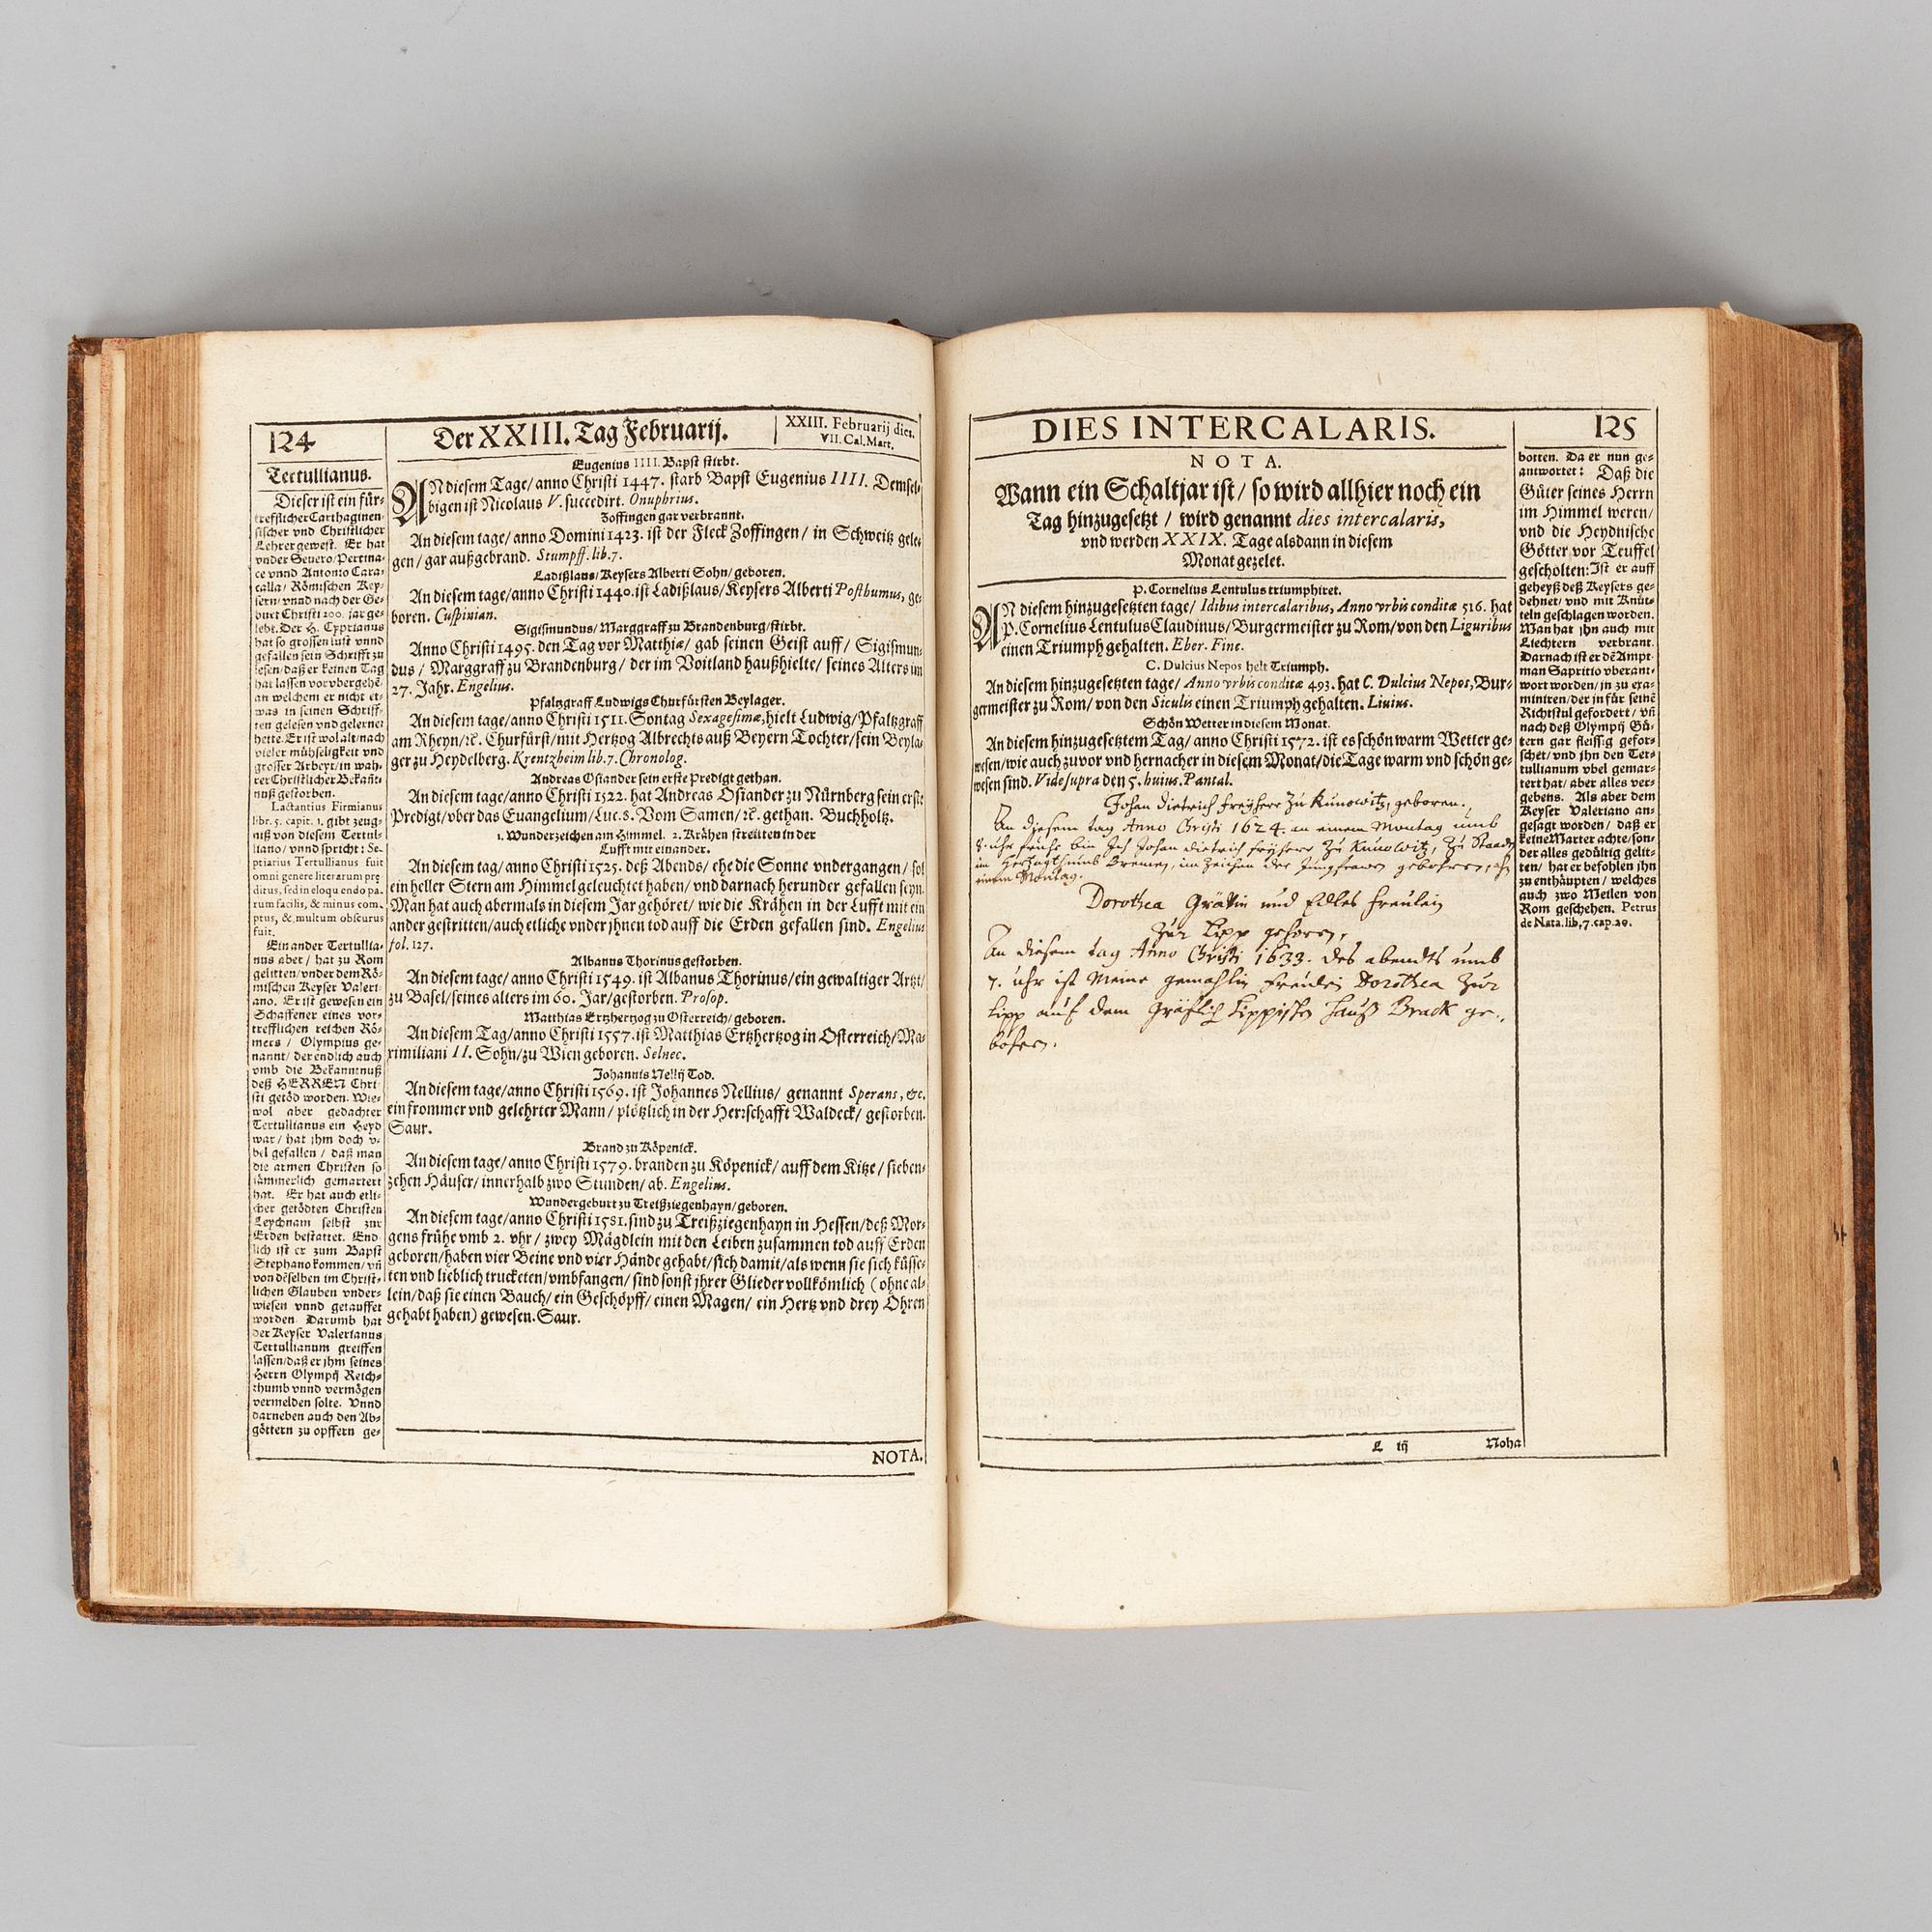 124
Der XXIII. Tag Februarij.
XXIII. Februarij dict.
VII. Cal. Mart.
Tertullianus.
Dieser ist ein für-
trefflicher Carthaginen-
sischer vnd Christlicher
Lehrer gewest. Er hat
vnder Seuero/ Pertina-
ce vnnd Antonio Cara-
calla/ Römischen Key-
sern/ vnnd nach der Ge-
burt Christi 200. jar ge-
lebt. Der H. Cyprianus
hat so grossen lust vnnd
gefallen sein Schrifft zu
lesen/ daß er keinen Tag
hat lassen vorvbergehē/
an welchem er nicht et-
was in seinen Schriff-
ten gelesen vnd gelernet
hette. Er ist wol alt/ nach
vieler mühseligkeit vnd
grosser Arbeyt/ in wah-
rer Christlicher Bekañt-
nuß gestorben.
Lactantius Firmianus
libr. 5. capit. 1. gibt zeug-
nuß von diesem Tertul-
liano/ vnnd spricht: Se-
ptiarius Tertullianus fuit
omni genere literarum prę
ditus, sed in eloquendo pa-
rum facilis, & minus com-
ptus, & multum obscurus
fuit.
Ein ander Tertullia-
nus aber/ hat zu Rom
gelitten/ vnder dem Rö-
mischen Keyser Valeri-
ano. Er ist gewesen ein
Schaffener eines vor-
trefflichen reichen Rö-
mers / Olympius ge-
nannt/ der endlich auch
vmb die Bekanntnuß
deß HERREN Chri-
sti getöd worden. Wie-
wol aber gedachter
Tertullianus ein Heyd
war/ hat jhm doch v-
bel gefallen / daß man
die armen Christen so
jämmerlich gemartert
hat. Er hat auch etli-
cher getödten Christen
Leychnam selbst zur
Erden bestattet. End-
lich ist er zum Bapst
Stephano kommen/ vñ
von dēselben im Christ-
lichen Glauben vnder-
wiesen vnnd getauffet
worden. Darumb hat
der Keyser Valerianus
Tertullianum greiffen
lassen/ daß er jhm seines
Herrn Olympij Reich-
thumb vnnd vermögen
vermelden solte. Vnnd
darneben auch den Ab-
göttern zu opffern ge-
Eugenius IIII. Bapst stirbt.
AN diesem Tage/ anno Christi 1447. starb Bapst Eugenius IIII. Demsel-
bigen ist Nicolaus V. succedirt. Onuphrius.
Zoffingen gar verbrannt.
An diesem tage/ anno Domini 1423. ist der Fleck Zoffingen/ in Schweitz gele-
gen/ gar außgebrand. Stumpff. lib. 7.
Ladißlaus/ Keysers Alberti Sohn/ geboren.
An diesem tage/ anno Christi 1440. ist Ladißlaus/ Keysers Alberti Posthumus, ge-
boren. Cuspinian.
Sigismundus/ Marggraff zu Brandenburg/ stirbt.
Anno Christi 1495. den Tag vor Matthiæ/ gab seinen Geist auff/ Sigismun-
dus / Marggraff zu Brandenburg / der im Voitland haußhielte/ seines Alters im
27. Jahr. Engelius.
Pfaltzgraff Ludwigs Churfürsten Beylager.
An diesem tage/ anno Christi 1511. Sontag Sexagesimæ, hielt Ludwig/ Pfaltzgraff
am Rheyn/ ꝛc. Churfürst/ mit Hertzog Albrechts auß Beyern Tochter/ sein Beyla-
ger zu Heydelberg. Krentzheim lib. 7. Chronolog.
Andreas Osiander sein erste Predigt gethan.
An diesem tage/ anno Christi 1522. hat Andreas Osiander zu Nürnberg sein erste
Predigt/ vber das Euangelium/ Luc. 8. Vom Samen/ ꝛc. gethan. Buchholtz.
1. Wunderzeichen am Himmel. 2. Krähen streitten in der
Lufft mit einander.
An diesem tag/ anno Christi 1525. deß Abends/ ehe die Sonne vndergangen/ sol
ein heller Stern am Himmel geleuchtet haben/ vnd darnach herunder gefallen seyn.
Man hat auch abermals in diesem Jar gehöret/ wie die Krähen in der Lufft mit ein
ander gestritten/ auch etliche vnder jhnen tod auff die Erden gefallen sind. Engelius
fol. 127.
Albanus Thorinus gestorben.
An diesem tage/ anno Christi 1549. ist Albanus Thorinus/ ein gewaltiger Artzt/
zu Basel/ seines alters im 60. Jar/ gestorben. Prosop.
Matthias Ertzhertzog zu Osterreich/ geboren.
An diesem Tag/ anno Christi 1557. ist Matthias Ertzhertzog in Osterreich/ Ma-
ximiliani II. Sohn/ zu Wien geboren. Selnec.
Johannis Nellij Tod.
An diesem tage/ anno Christi 1569. ist Johannes Nellius/ genannt Sperans, &c.
ein frommer vnd gelehrter Mann/ plötzlich in der Herrschafft Waldeck/ gestorben.
Saur.
Brand zu Köpenick.
An diesem tage/ anno Christi 1579. branden zu Köpenick/ auff dem Kitze/ sieben-
zehen Häuser/ innerhalb zwo Stunden/ ab. Engelius.
Wundergeburt zu Treißziegenhayn/ geboren.
An diesem tage/ anno Christi 1581. sind zu Treißziegenhayn in Hessen/ deß Mor-
gens frühe vmb 2. vhr/ zwey Mägdlein mit den Leiben zusammen tod auff Erden
geboren/ haben vier Beine vnd vier Hände gehabt/ sich damit/ als wenn sie sich küsse-
ten vnd lieblich trucketen/ vmbfangen/ sind sonst jhrer Glieder vollkömlich ( ohne al-
lein/ daß sie einen Bauch/ ein Geschöpff/ einen Magen/ ein Hertz vnd drey Ohren
gehabt haben) gewesen. Saur.
NOTA.
DIES INTERCALARIS.
125
NOTA.
Wann ein Schaltjar ist/ so wird allhier noch ein
Tag hinzugesetzt / wird genannt dies intercalaris,
vnd werden XXIX. Tage alsdann in diesem
Monat gezelet.
P. Cornelius Lentulus triumphiret.
AN diesem hinzugesetzten tage/ Idibus intercalaribus, Anno vrbis conditæ 516. hat
P. Cornelius Lentulus Claudinus/ Burgermeister zu Rom/ von den Liguribus
einen Triumph gehalten. Eber. Finc.
C. Dulcius Nepos helt Triumph.
An diesem hinzugesetzten tage/ Anno vrbis conditæ 493. hat C. Dulcius Nepos, Bur-
germeister zu Rom/ von den Siculis einen Triumph gehalten. Liuius.
Schön Wetter in diesem Monat.
An diesem hinzugesetztem Tag/ anno Christi 1572. ist es schön warm Wetter ge-
wesen/ wie auch zuvor vnd hernacher in diesem Monat/ die Tage warm vnd schön ge-
wesen sind. Vide supra den 5. huius. Pantal.
Johan dietrich freyherr Zu Kunowitz, geboren.
An diesem tag Anno Christi 1624. an einem Montag umb
8. uhr fruhe bin Ich Johan dietrich freyherr Zu Kunowitz, Zu Staade
im Hertzogthumb Bremen, im Zeichen der Jungfrawen gebohren,
einem Montag.
Dorothea Gräfin und Edles freulein
Zur Lipp gehoren,
An diesem tag Anno Christi 1633. des abendts umb
7. uhr ist Meine gemahlin freulein Dorothea Zur
Lipp auf dem Gräflich Lippischen Hauß Brack ge-
bohren.
botten. Da er nun ge-
antwortet: Daß die
Güter seines Herrn
im Himmel weren/
vnd die Heydnische
Götter vor Teuffel
gescholten: Ist er auff
geheyß deß Keysers ge-
dehnet/ vnd mit Knüt-
teln geschlagen worden.
Man hat jhn auch mit
Liechtern verbrant.
Darnach ist er dē Ampt-
man Sapritio vberant-
wort worden/ jn zu exa-
miniren/ der jn für seinē
Richtstul gefordert/ vñ
nach deß Olympij Gü-
tern gar fleissig gefor-
schet/ vnd jhn den Ter-
tullianum vbel gemar-
tert hat/ aber alles ver-
gebens. Als aber dem
Keyser Valeriano an-
gesagt worden/ daß er
keine Marter achte/ son-
der alles gedültig gelit-
ten/ hat er befohlen jhn
zu enthäupten/ welches
auch zwo Meilen von
Rom geschehen. Petrus
de Nata. lib. 7. cap. 20.
L iij
Noha